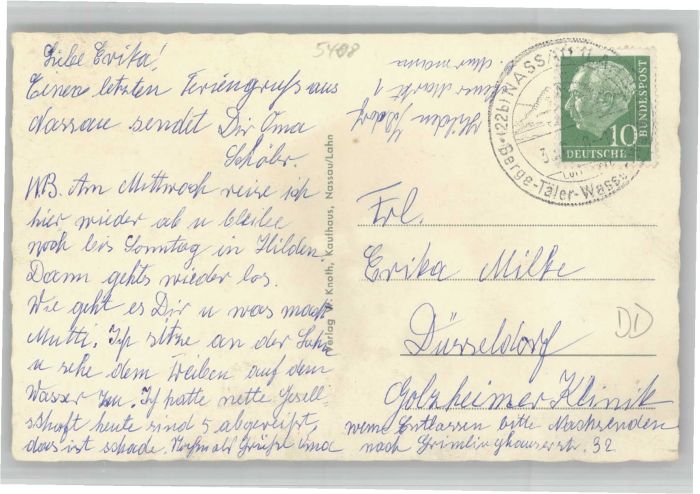 Liebe Erika!
Einen letzten Feriengruß aus
Nassau sendet Dir Oma
Schöler.
N.B. Am Mittwoch reise ich
hier wieder ab u bleibe
noch bis Sonntag in Hilden.
Dann gehts wieder los.
Wie geht es Dir u was macht
Mutti. Ich sitze an der Lahn
u sehe dem Treiben auf dem
Wasser zu. Ich hatte nette Gesell-
schaft heute sind 5 abgereißt,
das ist schade. Nochmals Grüße Oma
Verlag W. Knoth, Kaufhaus, Nassau/Lahn
5408
Hilden
(22b) NASSAU
Berge-Täler-Wasser
10
DEUTSCHE
BUNDESPOST
Frl.
Erika Milke
Düsseldorf
Golzheimer Klinik
wenn Entlassen bitte Nachsenden
nach Grimlinghauserstr. 32
DD